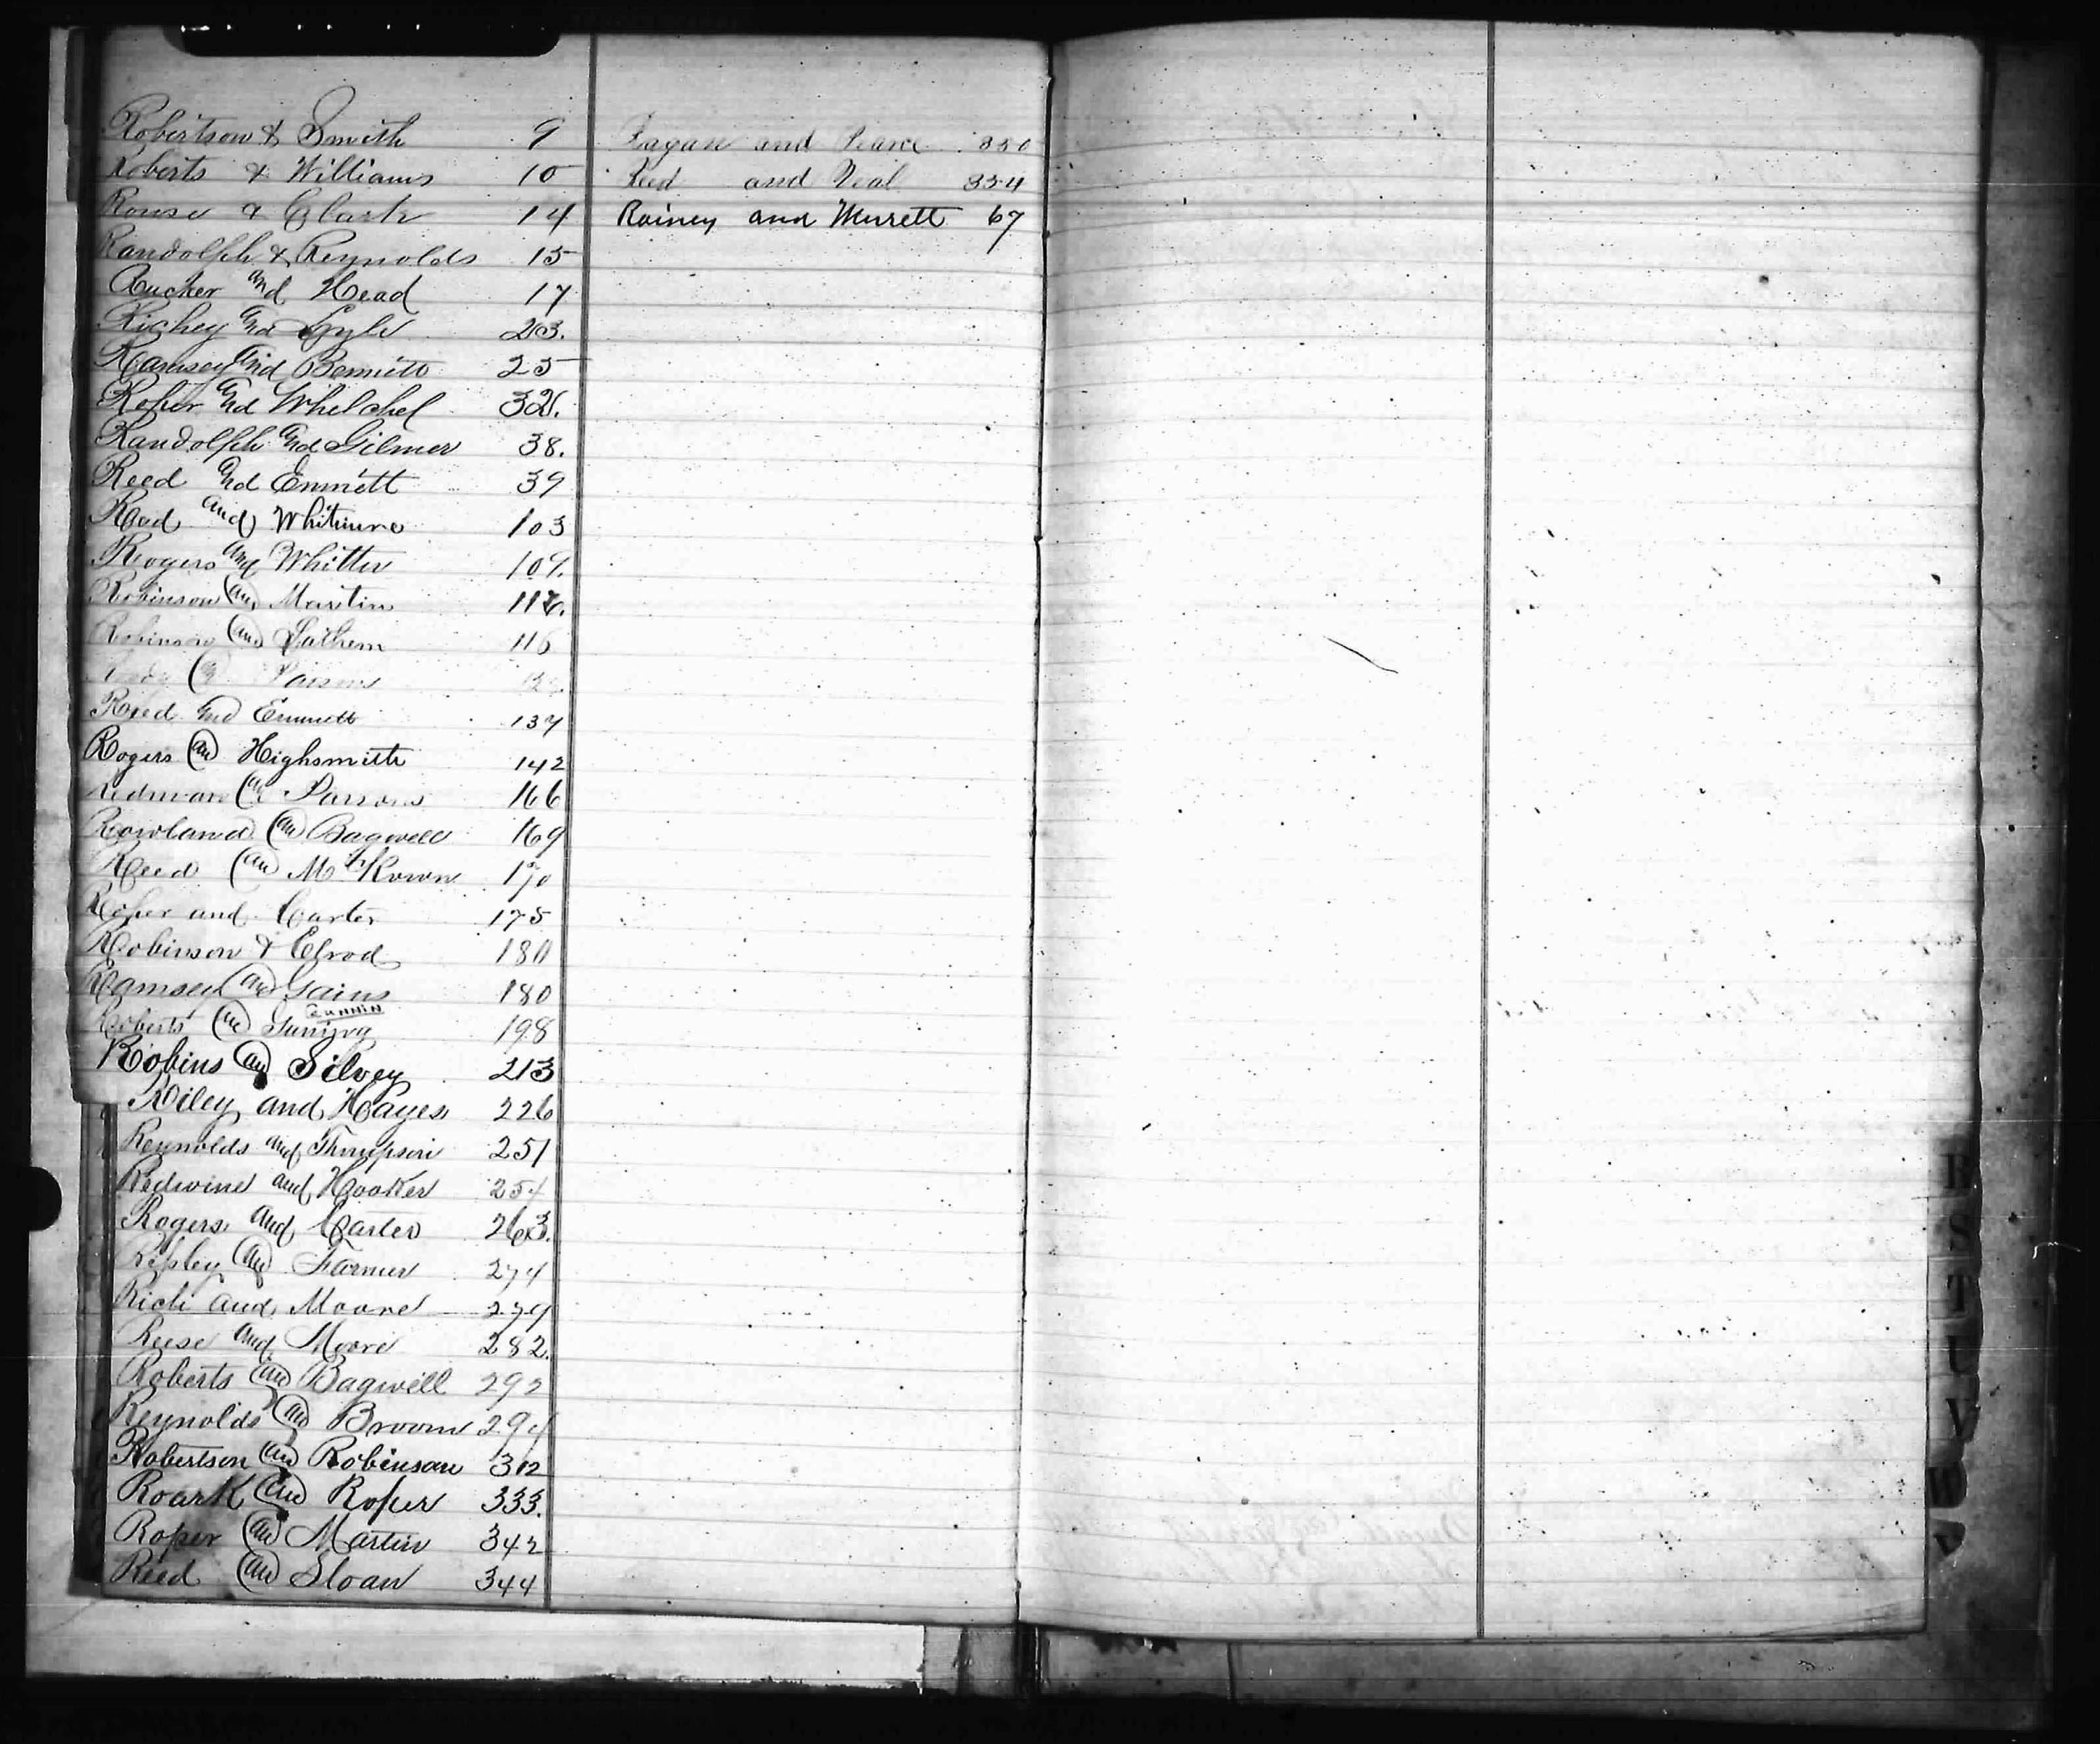 Robertson & Smith 9
Roberts & Williams 10
Rouse & Clark 14
Randolph & Reynolds 15
Rucker and Head 17
Richey and Lyle 23.
Ramsey and Bennett 25
Roper and Whelchel 32.
Randolph and Gilmer 38.
Reed and Emmett 39
Read and Whitmire 103
Rogers and Whitten 109.
Robinson an Martin
Robinson and Lathem 116
Parsons
Reed and Emmett 137
Rogers an Highsmith 142
Redman an Parsons 166
Rowland an Bagwell 169
Reed an 170
Roper and Carter 175
Robinson & Elrod 180
Ramsey an Gaines 180
GUNNIN
Roberts an 198
Robins an Silvey 213
Riley and Hayes 226
Reynolds and Thompson 251
Redwine and Hooker 254
Rogers and Carter 263.
Ripley an Farmer 274
Rich and Moore 279
Reese and Moore 282.
Roberts an Bagwell 292
Reynolds an Broom 294
Robertson an Robinson 312
Roark an Roper 333.
Roper an Martin 342
Reed an Sloan 344
Ragan and Pearce 350
Reed and Neal 354
Rainey and 67
R
S
T
U
V
W